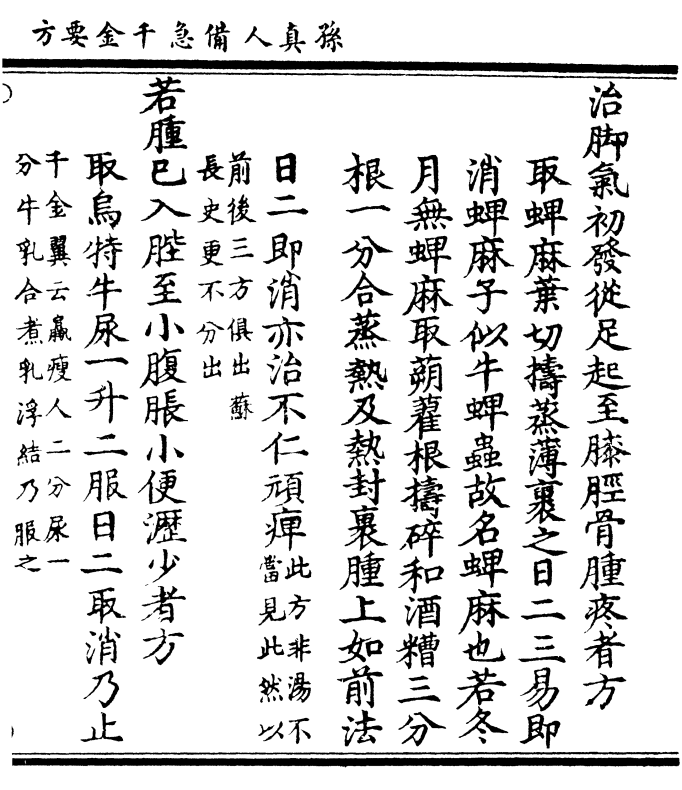 孫真人備急千金要方
治脚氣初發從足起至膝脛骨腫疼者方
取蜱麻葉切擣蒸薄裹之日二三易即
消蜱麻子似牛蜱蟲故名蜱麻也若冬
月無蜱麻取蒴藋根擣碎和酒糟三分
根一分合蒸熱及熱封裹腫上如前法
日二即消亦治不仁頑痺此方非湯不
當見此然以
前後三方俱出蘇
長史更不分出
若腫已入䏶至小腹脹小便澀少者方
取烏特牛尿一升二服日二取消乃止
千金翼云羸瘦人二分尿一
分牛乳合煮乳浮結乃服之